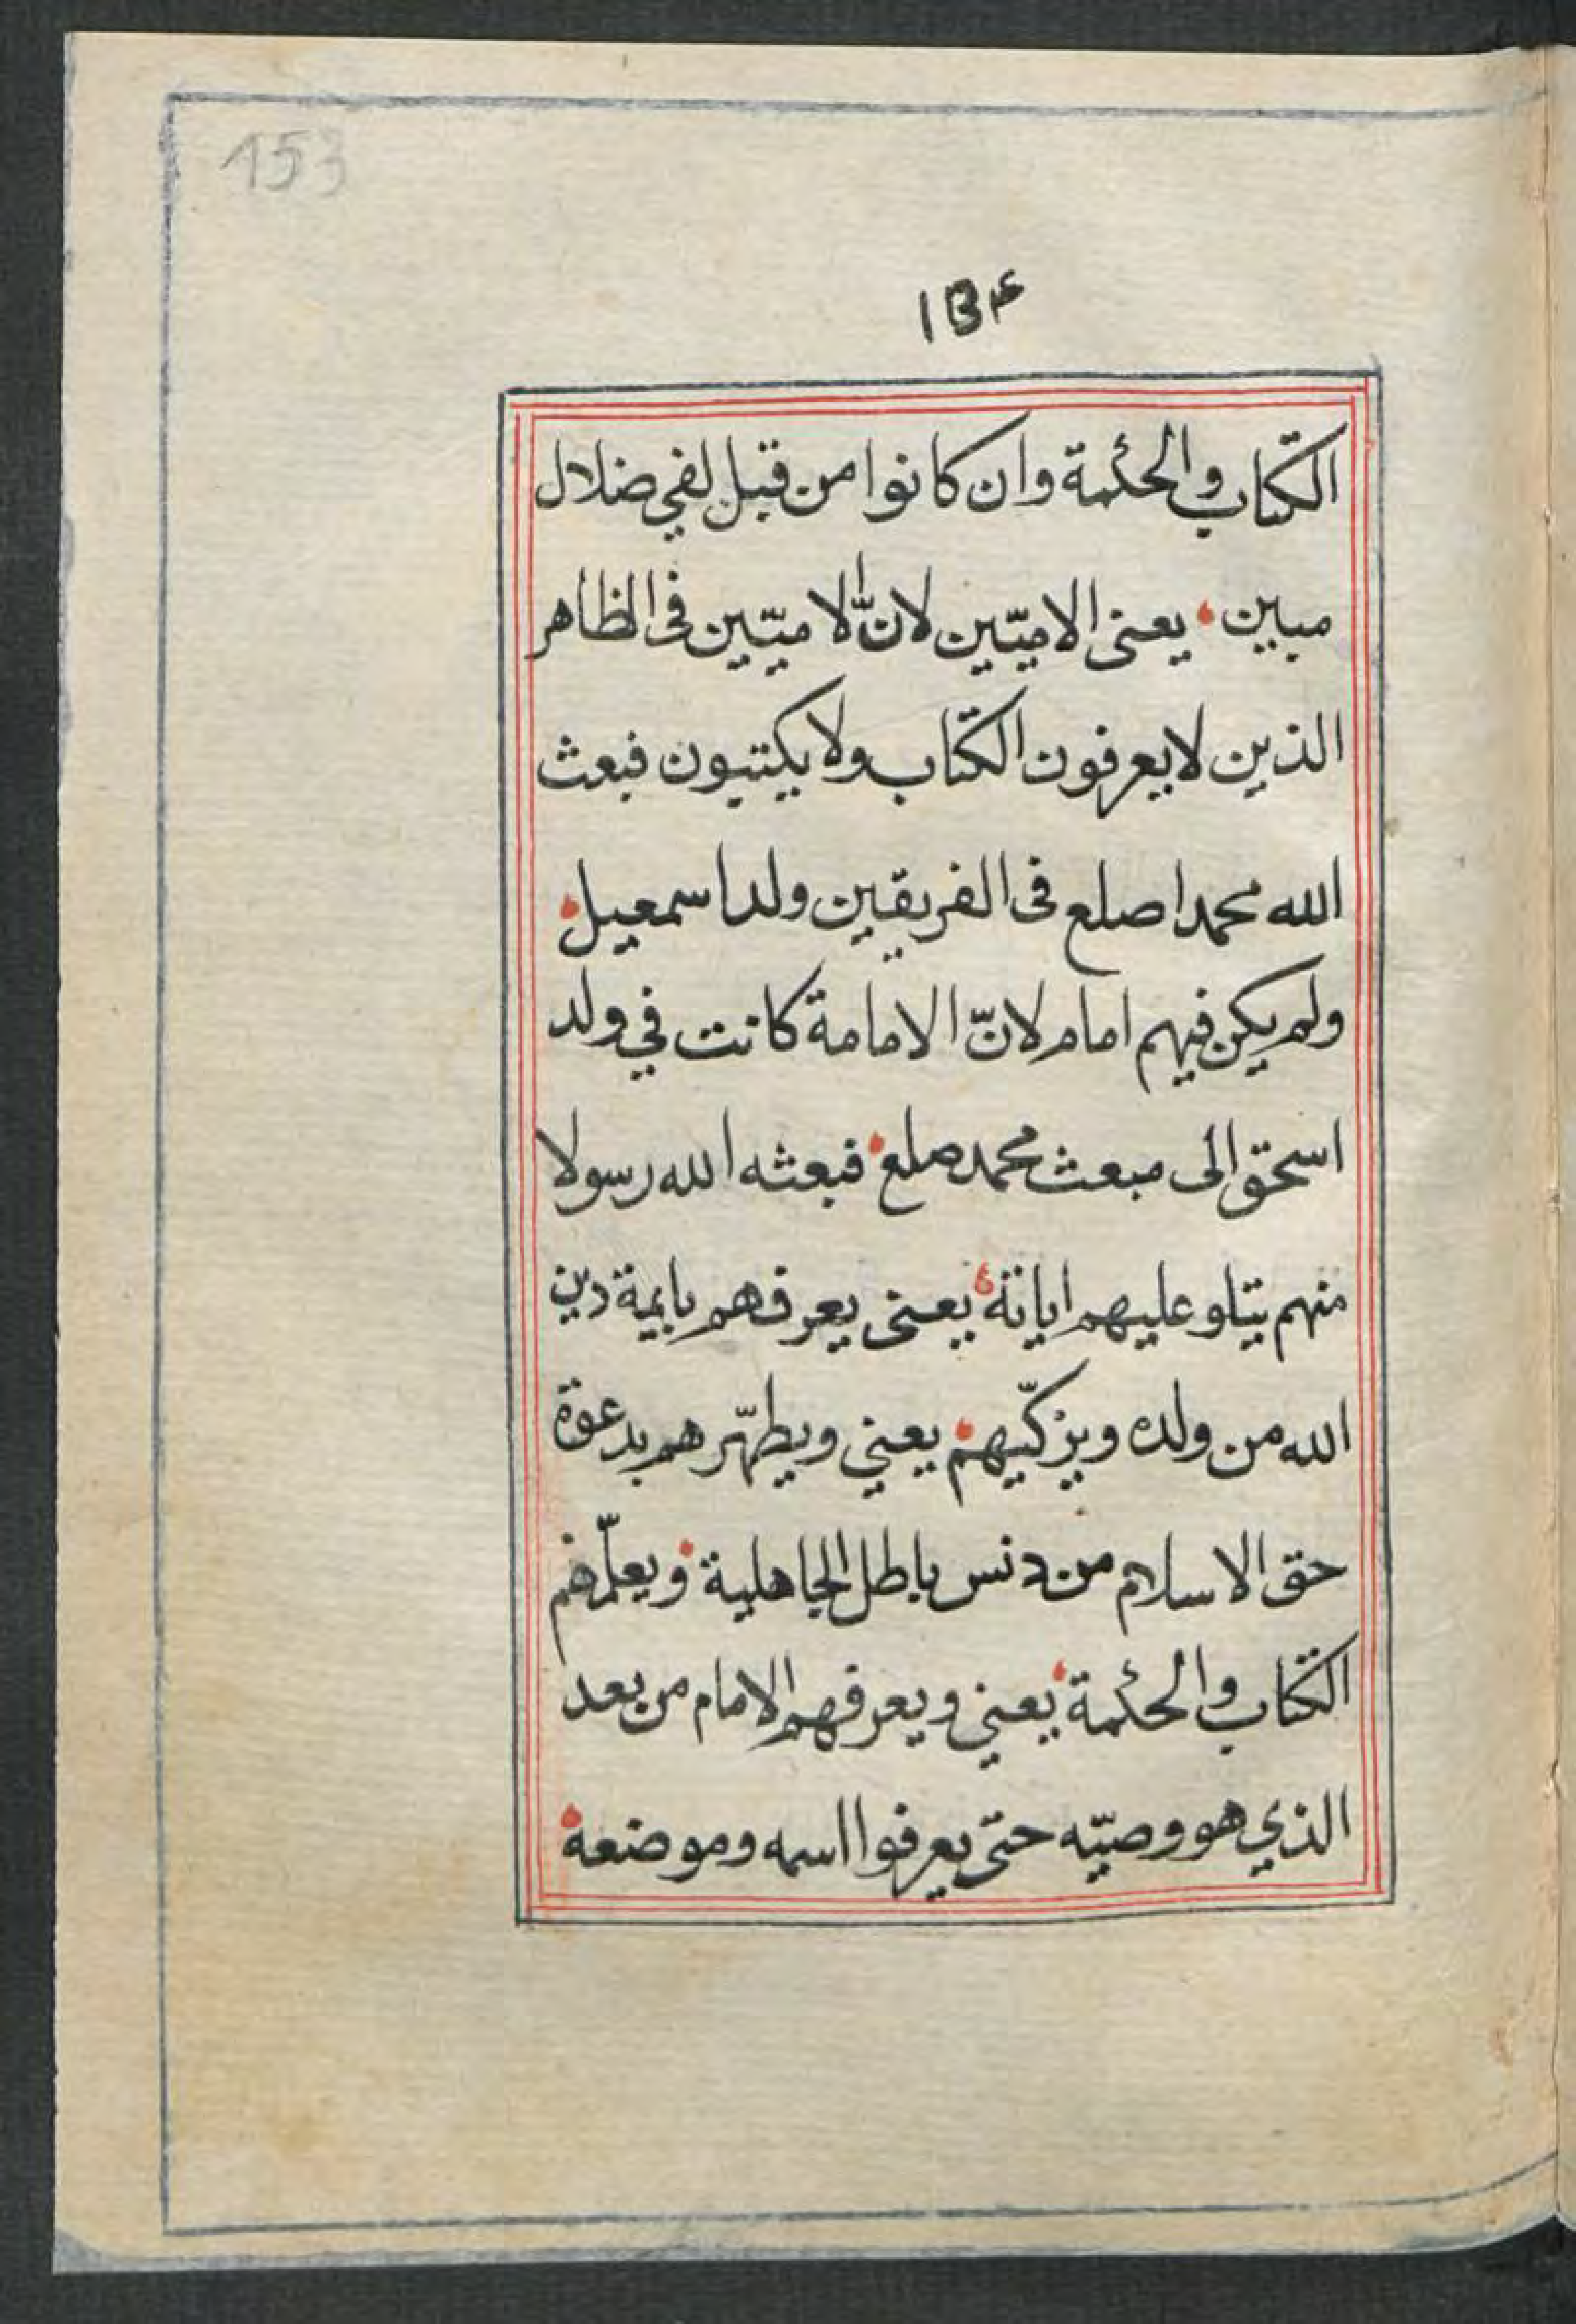 153
١٥٤
الكتاب والحكمة وان كانوا من قبل لفي ضلال
مبين يعنى الاميّين لانّ الاميّين فى الظاهر
الذين لا يعرفون الكتاب ولا يكتبون فبعث
الله محمدا صلع فى الفريقين ولد اسمعيل
ولم يكن فيهم امام لانّ الامامة كانت في ولد
اسحق الى مبعث محمد صلع فبعثه الله رسولا
منهم يتلو عليهم اياته يعنى يعرفهم بايمة دين
الله من ولده ويزكّيهم يعني ويطهّرهم بدعوة
حق الاسلام من دنس باطل الجاهلية ويعلّمهم
الكتاب والحكمة يعني ويعرفهم الامام من بعد
الذي هو وصيّه حتى يعرفوا اسمه وموضعه